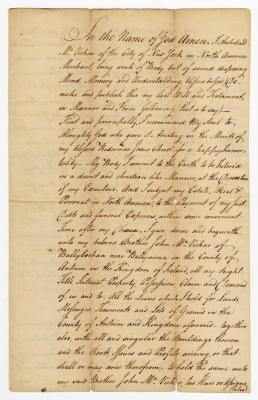 In the Name of God Amen. I Archibald
Mc Vickar of the City of New York in North America
Merchant, being weak of Body, but of sound disposing
Mind, Memory and Understanding, blessed be God, do
make and publish this my last Will and Testament,
in Manner and Form following, that is to say
First and principally, I recommend My Soul to
Almighty God who gave it, trusting in the Merits of
my blessed Redeemer Jesus Christ for a happy Immor-
tality. My Body I commit to the Earth to be Interred
in a decent and christian like Manner, at the Discretion
of my Executors. And I subject my Estate, Real &
Personal in North America, to the Payment of my just
Debts and funeral Expences within some convenient
Time after my Decease. I give, devise and bequeath
unto my beloved Brother John Mc Vickar of
Ballylochan near Ballymena in the County of
Antrim in the Kingdom of Ireland, all my Right
Title Interest, Property Possession Claim and Demand
of in and to All the Leases which I hold for Lands
Messuages, Tenements and Lots of Ground in the
County of Antrim and Kingdom aforesaid, together
also, with all and singular the Buildings thereon
and the Rents Issues and Profits arising, or that
shall or may arise therefrom. To hold the same unto
my said Brother John Mc Vickar, his Heirs or Assigns